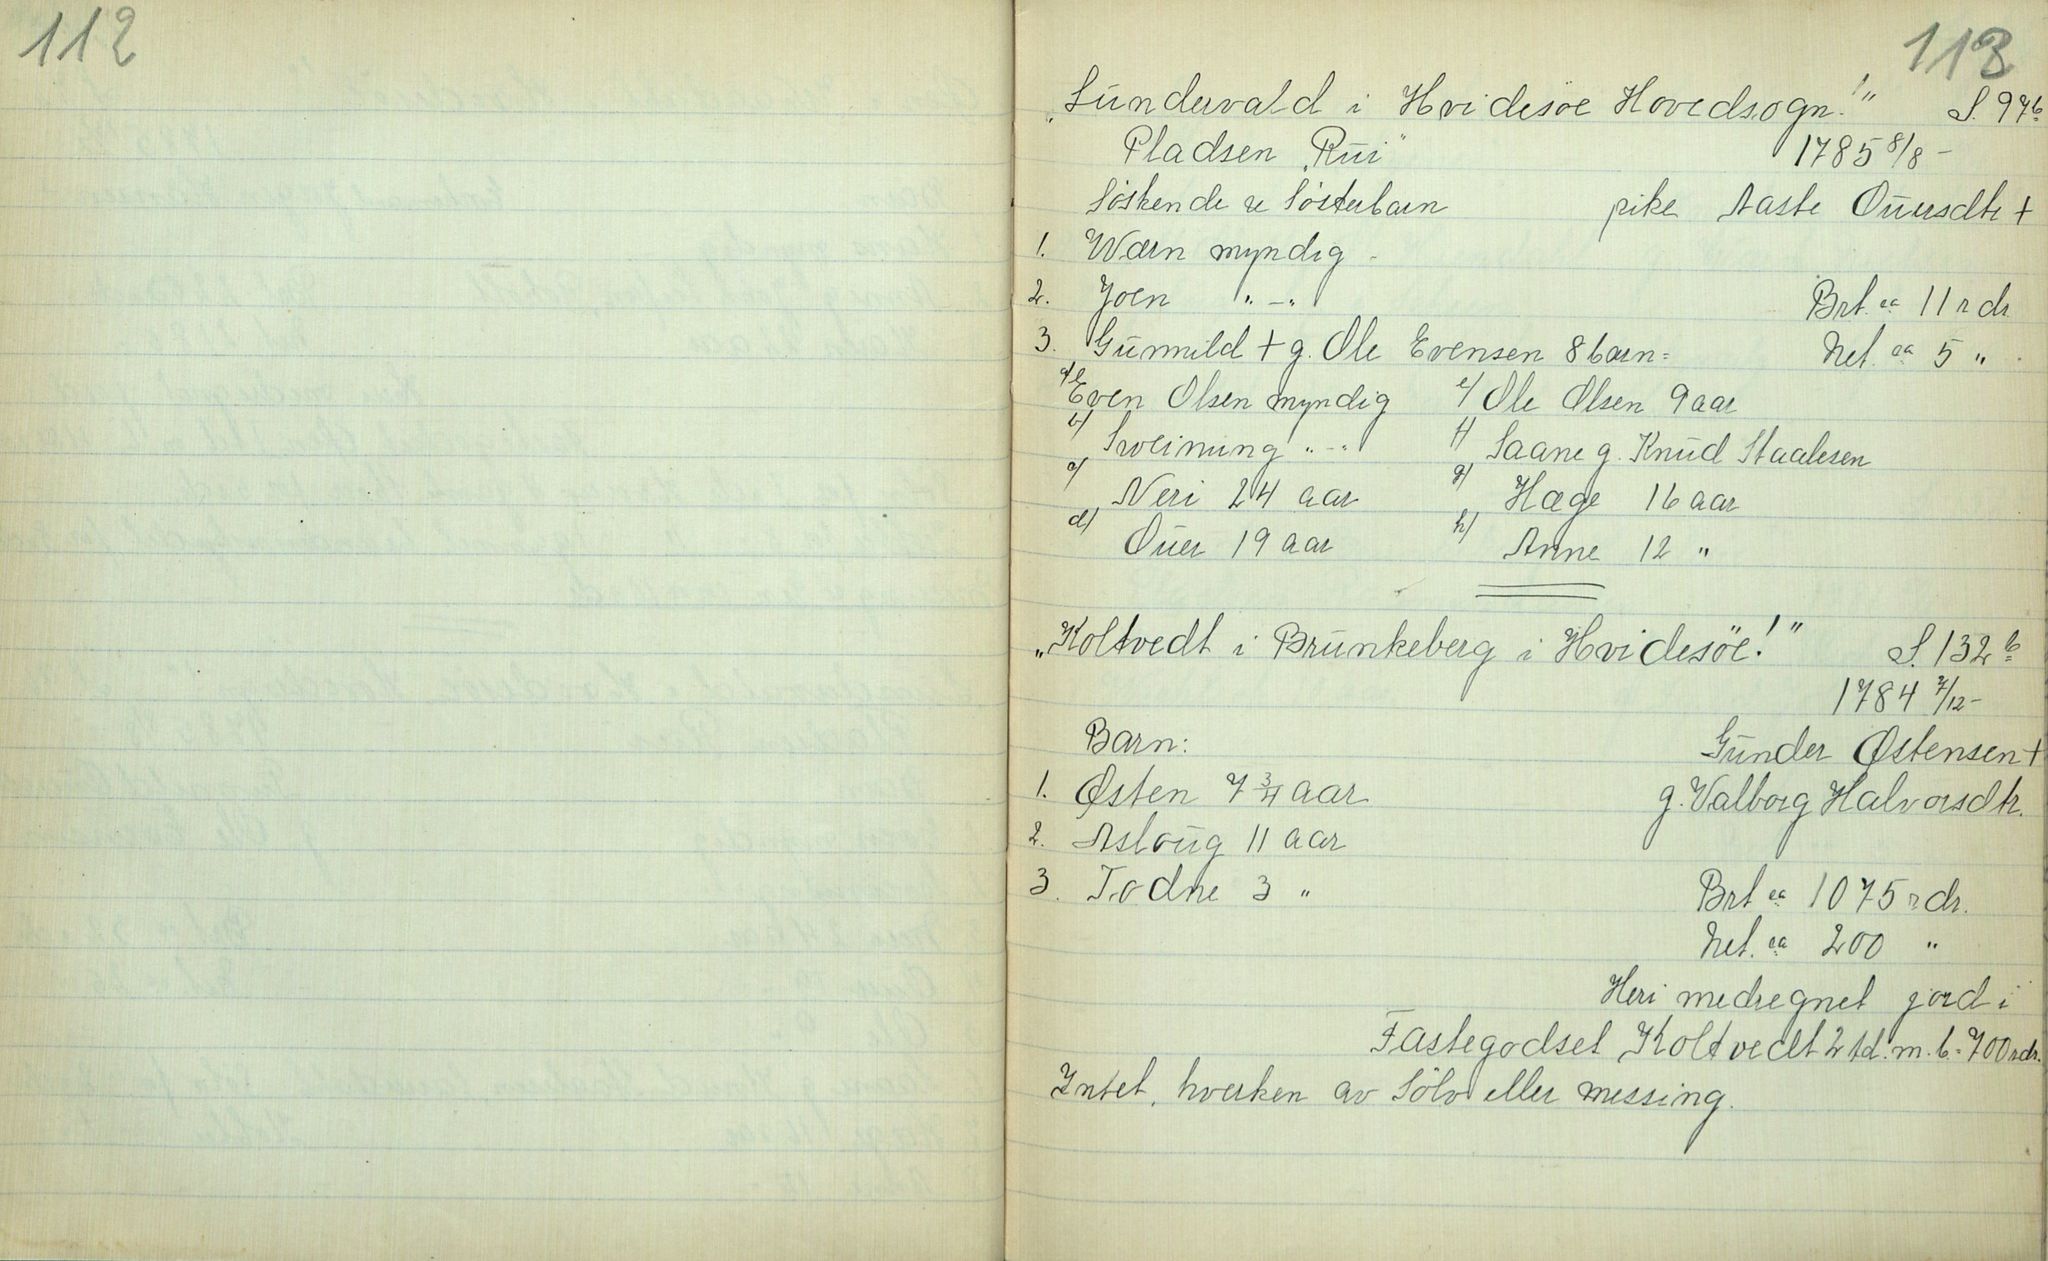 112
113
„Sundervald i Hvidesöe Hovedsogn!" S. 97b
Pladsen „Rui" 1785 8/8 -
Söskende & Sösterbarn pike Aaste Ouersdtr +
1. Wærn myndig -
2. Joen " - " Brt. ca 11 rdr.
3. Gunnild + g. Ole Evensen 8 barn = Net. ca 5 "
a) Even Olsen myndig e) Ole Olsen 9 aar
b) Sveinung " - " f) Saane g. Knud Staalesen
c) Neri 24 aar g) Hæge 16 aar
d) Ouer 19 aar h) Anne 12 "
„Koltvedt i Brunkeberg i Hvidesöe!" S. 132 b
1784 7/12 -
Barn: Gunder Østensen +
1. Østen 7 3/4 aar g. Valborg Halvorsdtr.
2. Asloug 11 aar
3. Todne 3 " Brt ca 1075 rdr.
Net. ca 200 "
Heri medregnet jord i
Fastegodset Koltvedt 2 td. m. b. 700 rdr.
Intet, hverken av Sölv eller messing.